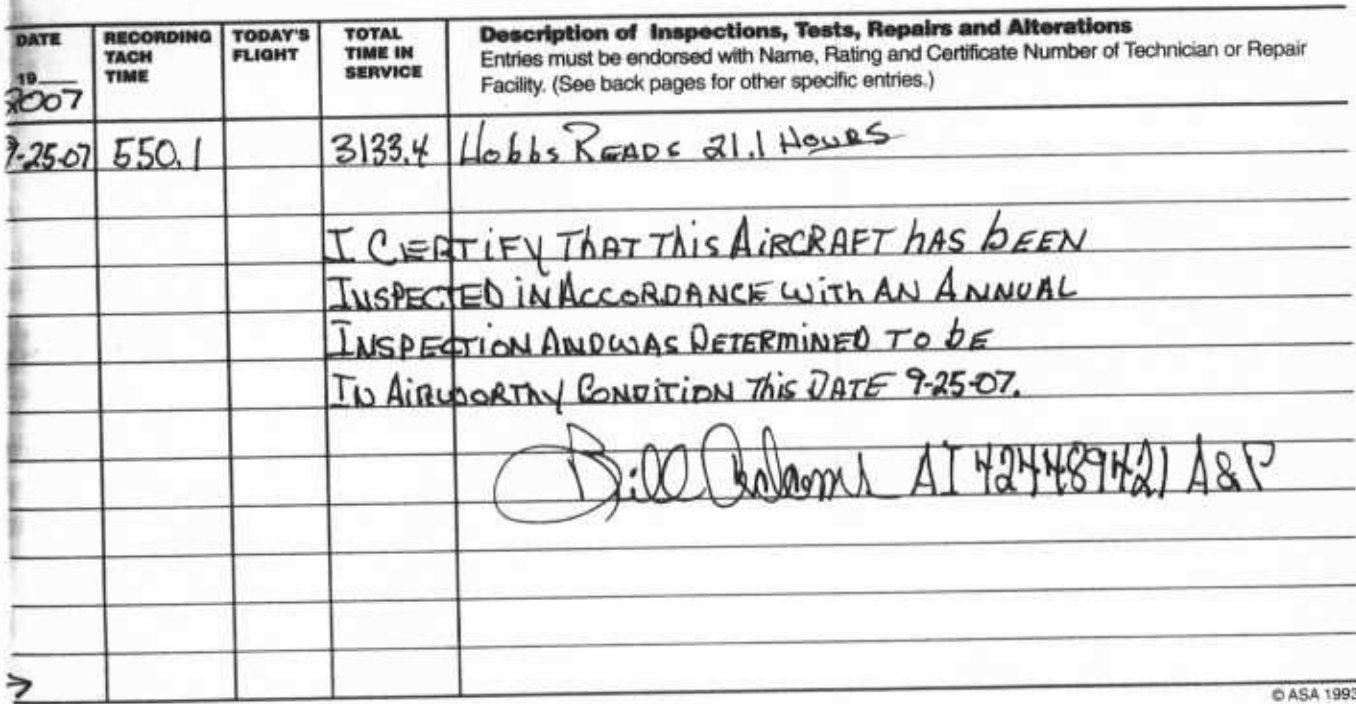 DATE
19____
2007
RECORDING
TACH
TIME
TODAY'S
FLIGHT
TOTAL
TIME IN
SERVICE
Description of Inspections, Tests, Repairs and Alterations
Entries must be endorsed with Name, Rating and Certificate Number of Technician or Repair
Facility. (See back pages for other specific entries.)
9-25-07 550.1 3133.4 Hobbs READS 21.1 HOURS
I CERTIFY THAT THIS AIRCRAFT HAS BEEN
INSPECTED IN ACCORDANCE WITH AN ANNUAL
INSPECTION AND WAS DETERMINED TO BE
IN AIRWORTHY CONDITION THIS DATE 9-25-07.
Bill AI 424489421 A&P
© ASA 1993